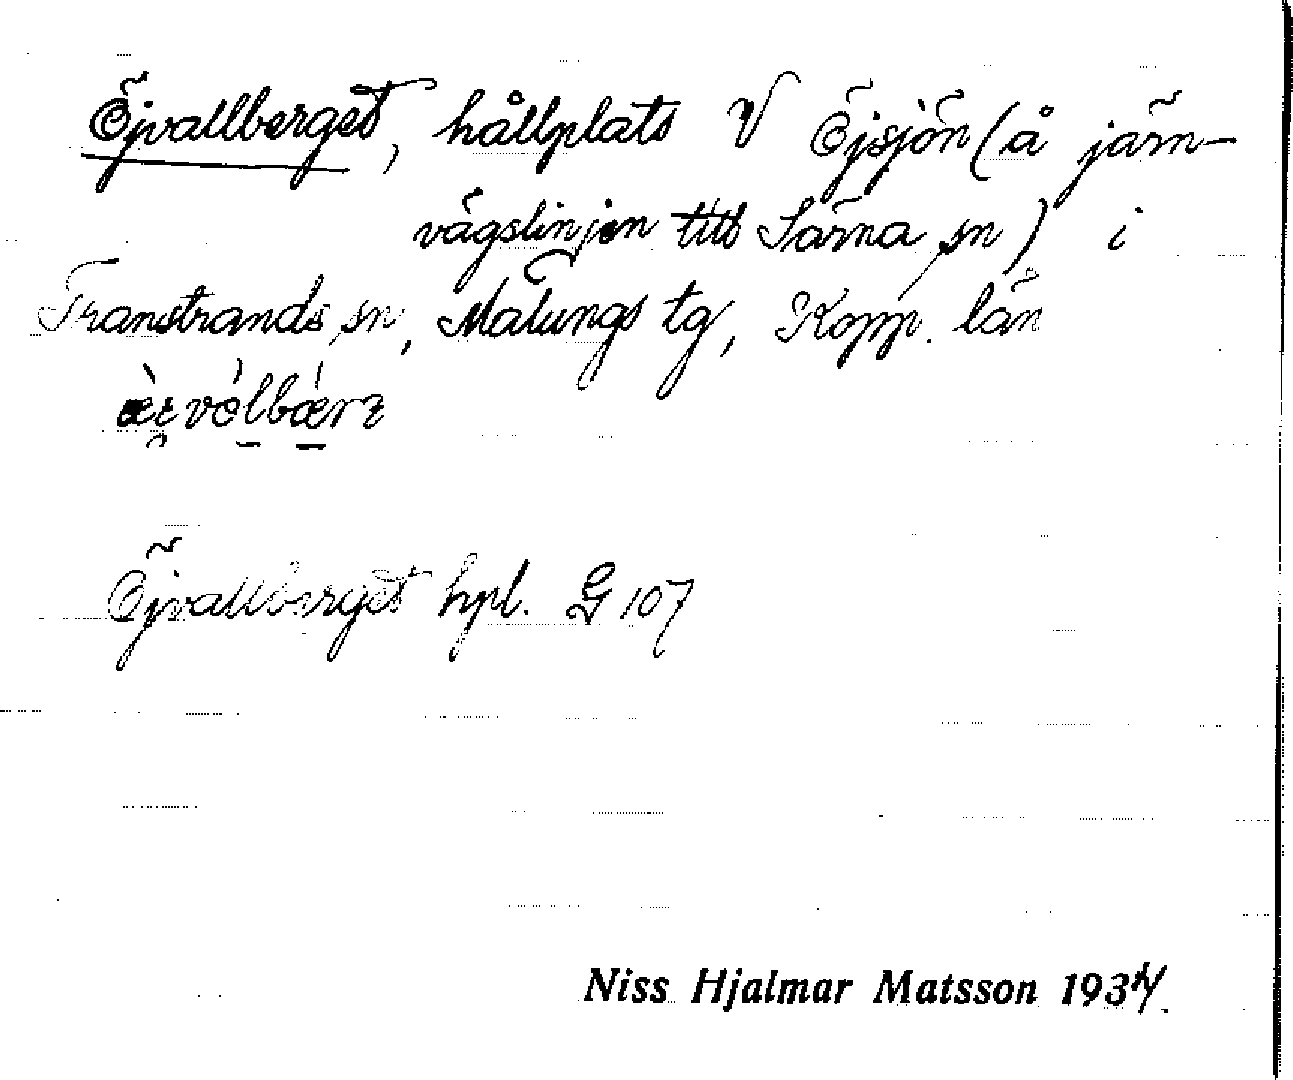 Öjvallberget, hållplats V Öjsjön (å järn-
vägslinjen till Särna sn) i
Transtrands sn, Malungs tg, Kopp. län
Öjvallberget hpl. G 107
Niss Hjalmar Matsson 1934.